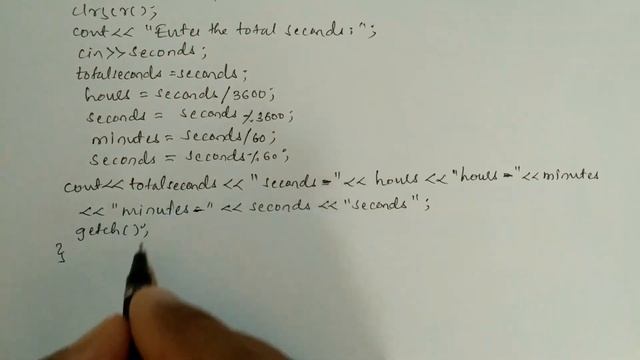 clrscr();
cout<< "Enter the total seconds:";
cin>>seconds;
totalseconds=seconds;
hours = seconds/3600;
seconds = seconds%3600;
minutes = seconds/60;
seconds = seconds%60;
cout<< totalseconds << "seconds=" << hours << "hours=" << minutes
<< "minutes=" << seconds << "seconds";
getch();
}